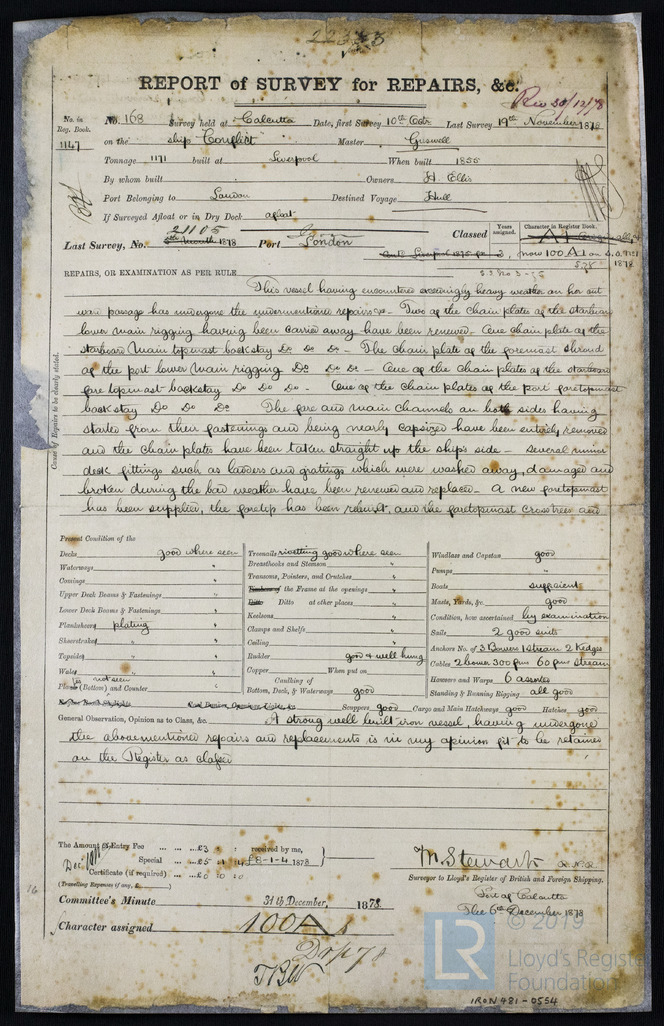 REPORT of SURVEY for REPAIRS, &c.
Rec 30/12/78
No. in Reg. Book. 1147
No. 168 Survey held at Calcutta Date, first Survey 10th Octr Last Survey 19th November 1878
on the ship Conflict Master Guswell
Tonnage 1171 built at Liverpool When built 1855
By whom built Owners H. Ellis
Port Belonging to London Destined Voyage Hull
If Surveyed Afloat or in Dry Dock afloat
Last Survey, No. 21105 1878 Port London Classed Years assigned. Character in Register Book.
now 100A1 1878
REPAIRS, OR EXAMINATION AS PER RULE
S.S No 3 - 75
Cause of Repairs to be clearly stated.
This vessel having encountered exceedingly heavy weather on her out
ward passage has undergone the undermentioned repairs Two of the chain plates of the starboard
lower main rigging having been carried away have been renewed - One chain plate of the
starboard Main topmast backstay Do Do Do - The chain plate of the foremost shroud
of the port lower Main rigging Do Do Do - One of the chain plates of the starboard
fore topmast backstay Do Do Do - One of the chain plates of the port foretopmast
backstay Do Do Do The fore and main channels on both sides having
started from their fastenings and being nearly capsized have been entirely removed
and the chain plates have been taken straight up the ship's side - Several minor
deck fittings such as ladders and gratings which were washed away, damaged and
broken during the bad weather have been renewed and replaced - A new foretopmast
has been supplied, the foretop has been rebuilt, and the foretopmast crosstrees and
Present Condition of the
Decks good where seen
Waterways "
Comings "
Upper Deck Beams & Fastenings "
Lower Deck Beams & Fastenings "
Planksheers plating "
Sheerstrakes "
Topsides "
Wales "
Plank (Bottom) and Counter not seen
Treenails rivetting good where seen
Breasthooks and Stemson "
Transoms, Pointers, and Crutches "
Timbers of the Frame at the openings "
Ditto Ditto at other places "
Keelsons "
Clamps and Shelfs "
Ceiling "
Rudder good & well hung
Copper When put on
Caulking of Bottom, Deck, & Waterways good
Windlass and Capstan good
Pumps "
Boats sufficient
Masts, Yards, &c. good
Condition, how ascertained by examination
Sails 2 good suits
Anchors No. of 3 Bowers 1 stream 2 Kedges
Cables 2 bower 300 fms 60 fms stream
Hawsers and Warps 6 assorted
Standing & Running Rigging all good
Scuppers good Cargo and Main Hatchways good Hatches good
General Observation, Opinion as to Class, &c. A strong well built iron vessel, having undergone
the abovementioned repairs and replacements is in my opinion fit to be retained
on the Register as classed
The Amount of Entry Fee £3 received by me,
Special £5 1 4 £8-1-4 1878
Certificate (if required) £0 10 0
(Travelling Expenses if any, £ )
M. Stewart
Surveyor to Lloyd's Register of British and Foreign Shipping.
Port of Calcutta
The 6th December 1878
Committee's Minute 31th December, 1878.
Character assigned 100A1
© 2019
LR Lloyd's Register Foundation
IRON 481-0554